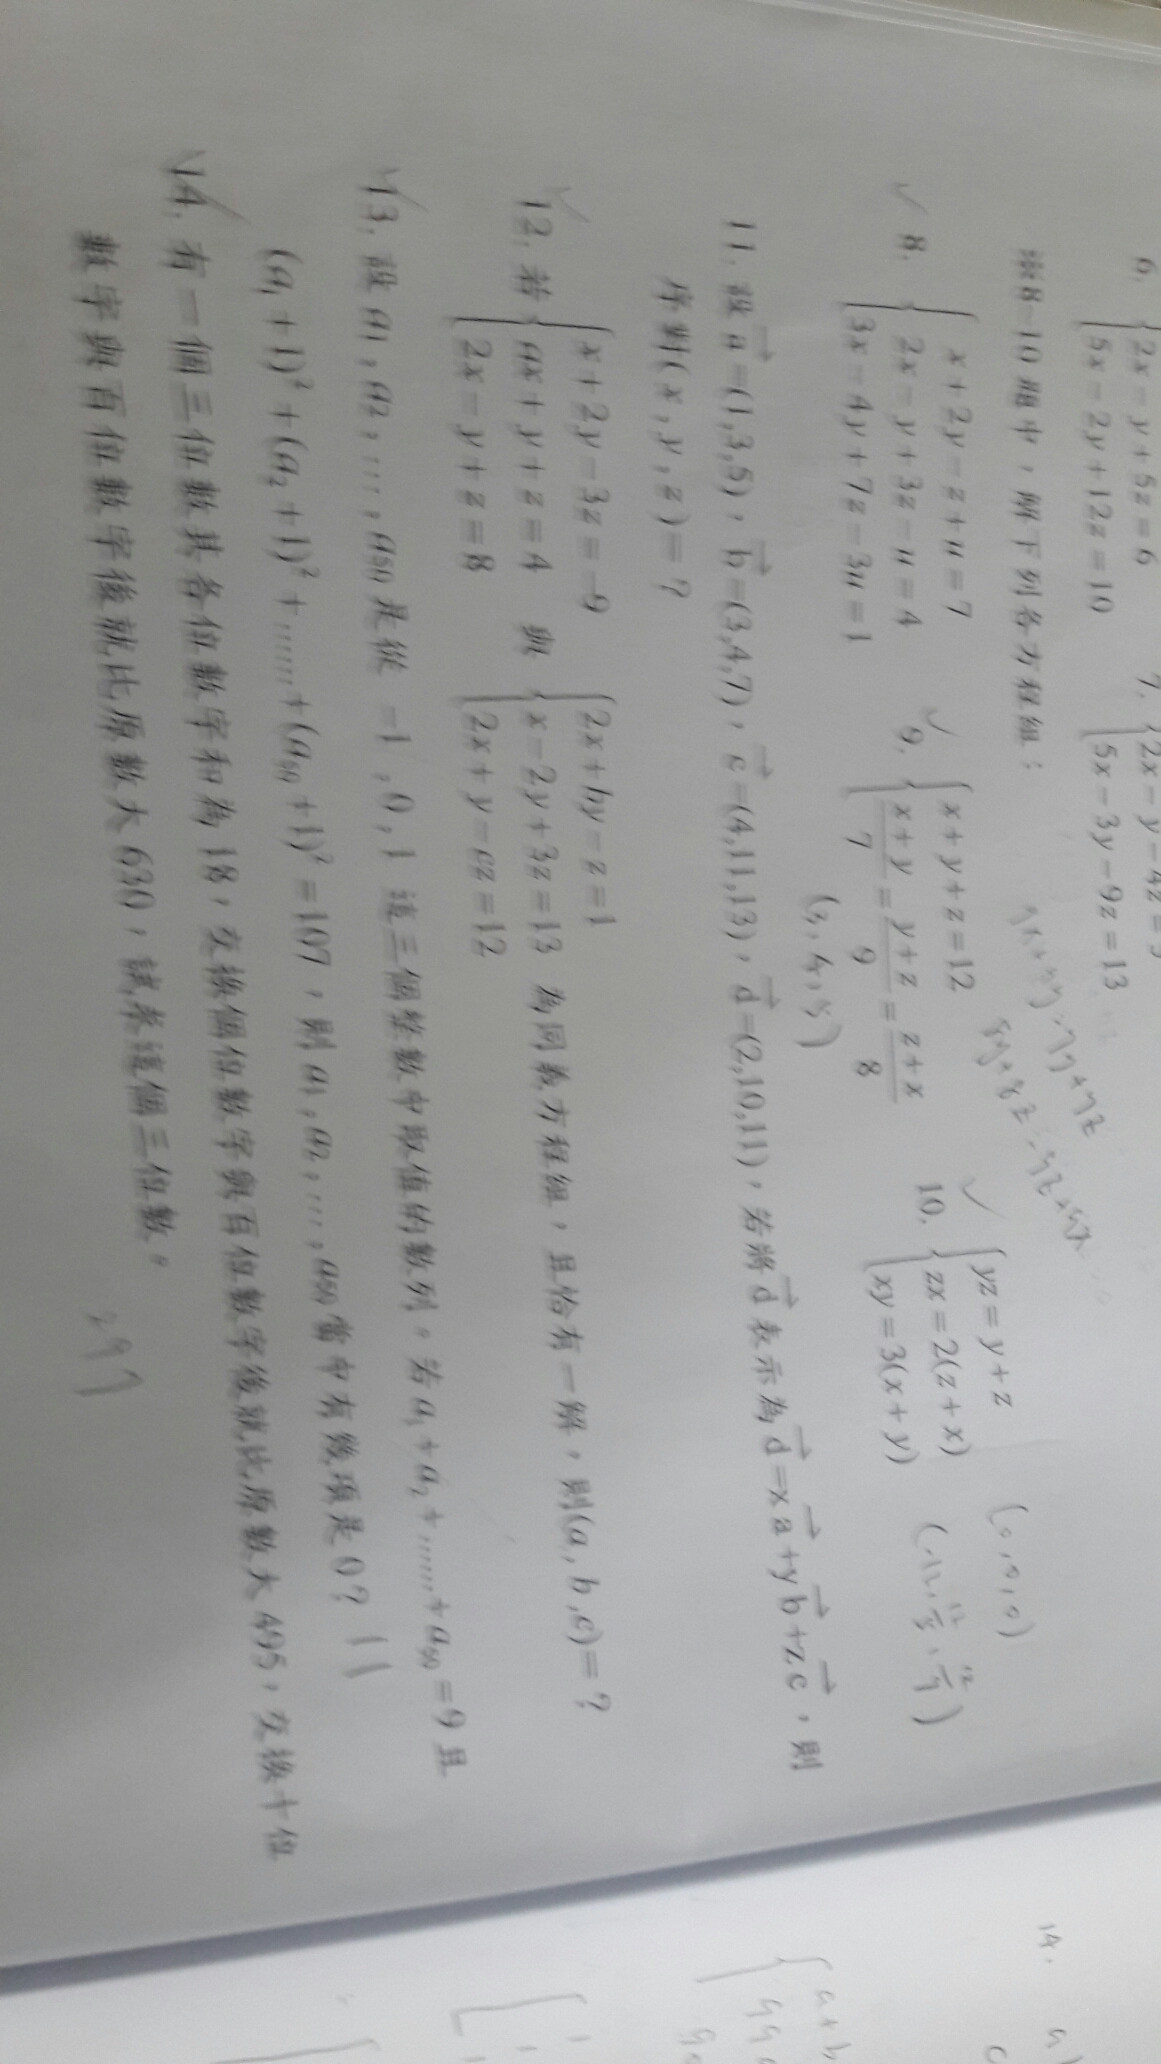 6. { 2x－y＋5z＝6
5x－2y＋12z＝10
7. { 2x－y－4z＝5
5x－3y－9z＝13
※8~10題中，解下列各方程組：
8. { x＋2y－z＋u＝7
2x－y＋3z－u＝4
3x－4y＋7z－3u＝1
9. { x＋y＋z＝12
(x＋y)/7＝(y＋z)/9＝(z＋x)/8
(3,4,5)
10. { yz＝y＋z
zx＝2(z＋x)
xy＝3(x＋y)
(0,0,0)
11. 設a⃗＝(1,3,5)，b⃗＝(3,4,7)，c⃗＝(4,11,13)，d⃗＝(2,10,11)，若將d⃗表示為d⃗＝xa⃗＋yb⃗＋zc⃗，則
序對(x,y,z)＝?
12. 若 { x＋2y－3z＝－9
ax＋y＋z＝4
2x－y＋z＝8
與 { 2x＋by－z＝1
x－2y＋3z＝13
2x＋y－cz＝12
為同義方程組，且恰有一解，則(a,b,c)＝?
13. 設a₁，a₂，…，a₅₀是從－1，0，1這三個整數中取值的數列。若a₁＋a₂＋……＋a₅₀＝9且
(a₁＋1)²＋(a₂＋1)²＋……＋(a₅₀＋1)²＝107，則a₁，a₂，…，a₅₀當中有幾項是0? 11
14. 有一個三位數其各位數字和為18，交換個位數字與百位數字後就比原數大495，交換十位
數字與百位數字後就比原數大630，試求這個三位數。
297
14.
{ a＋b